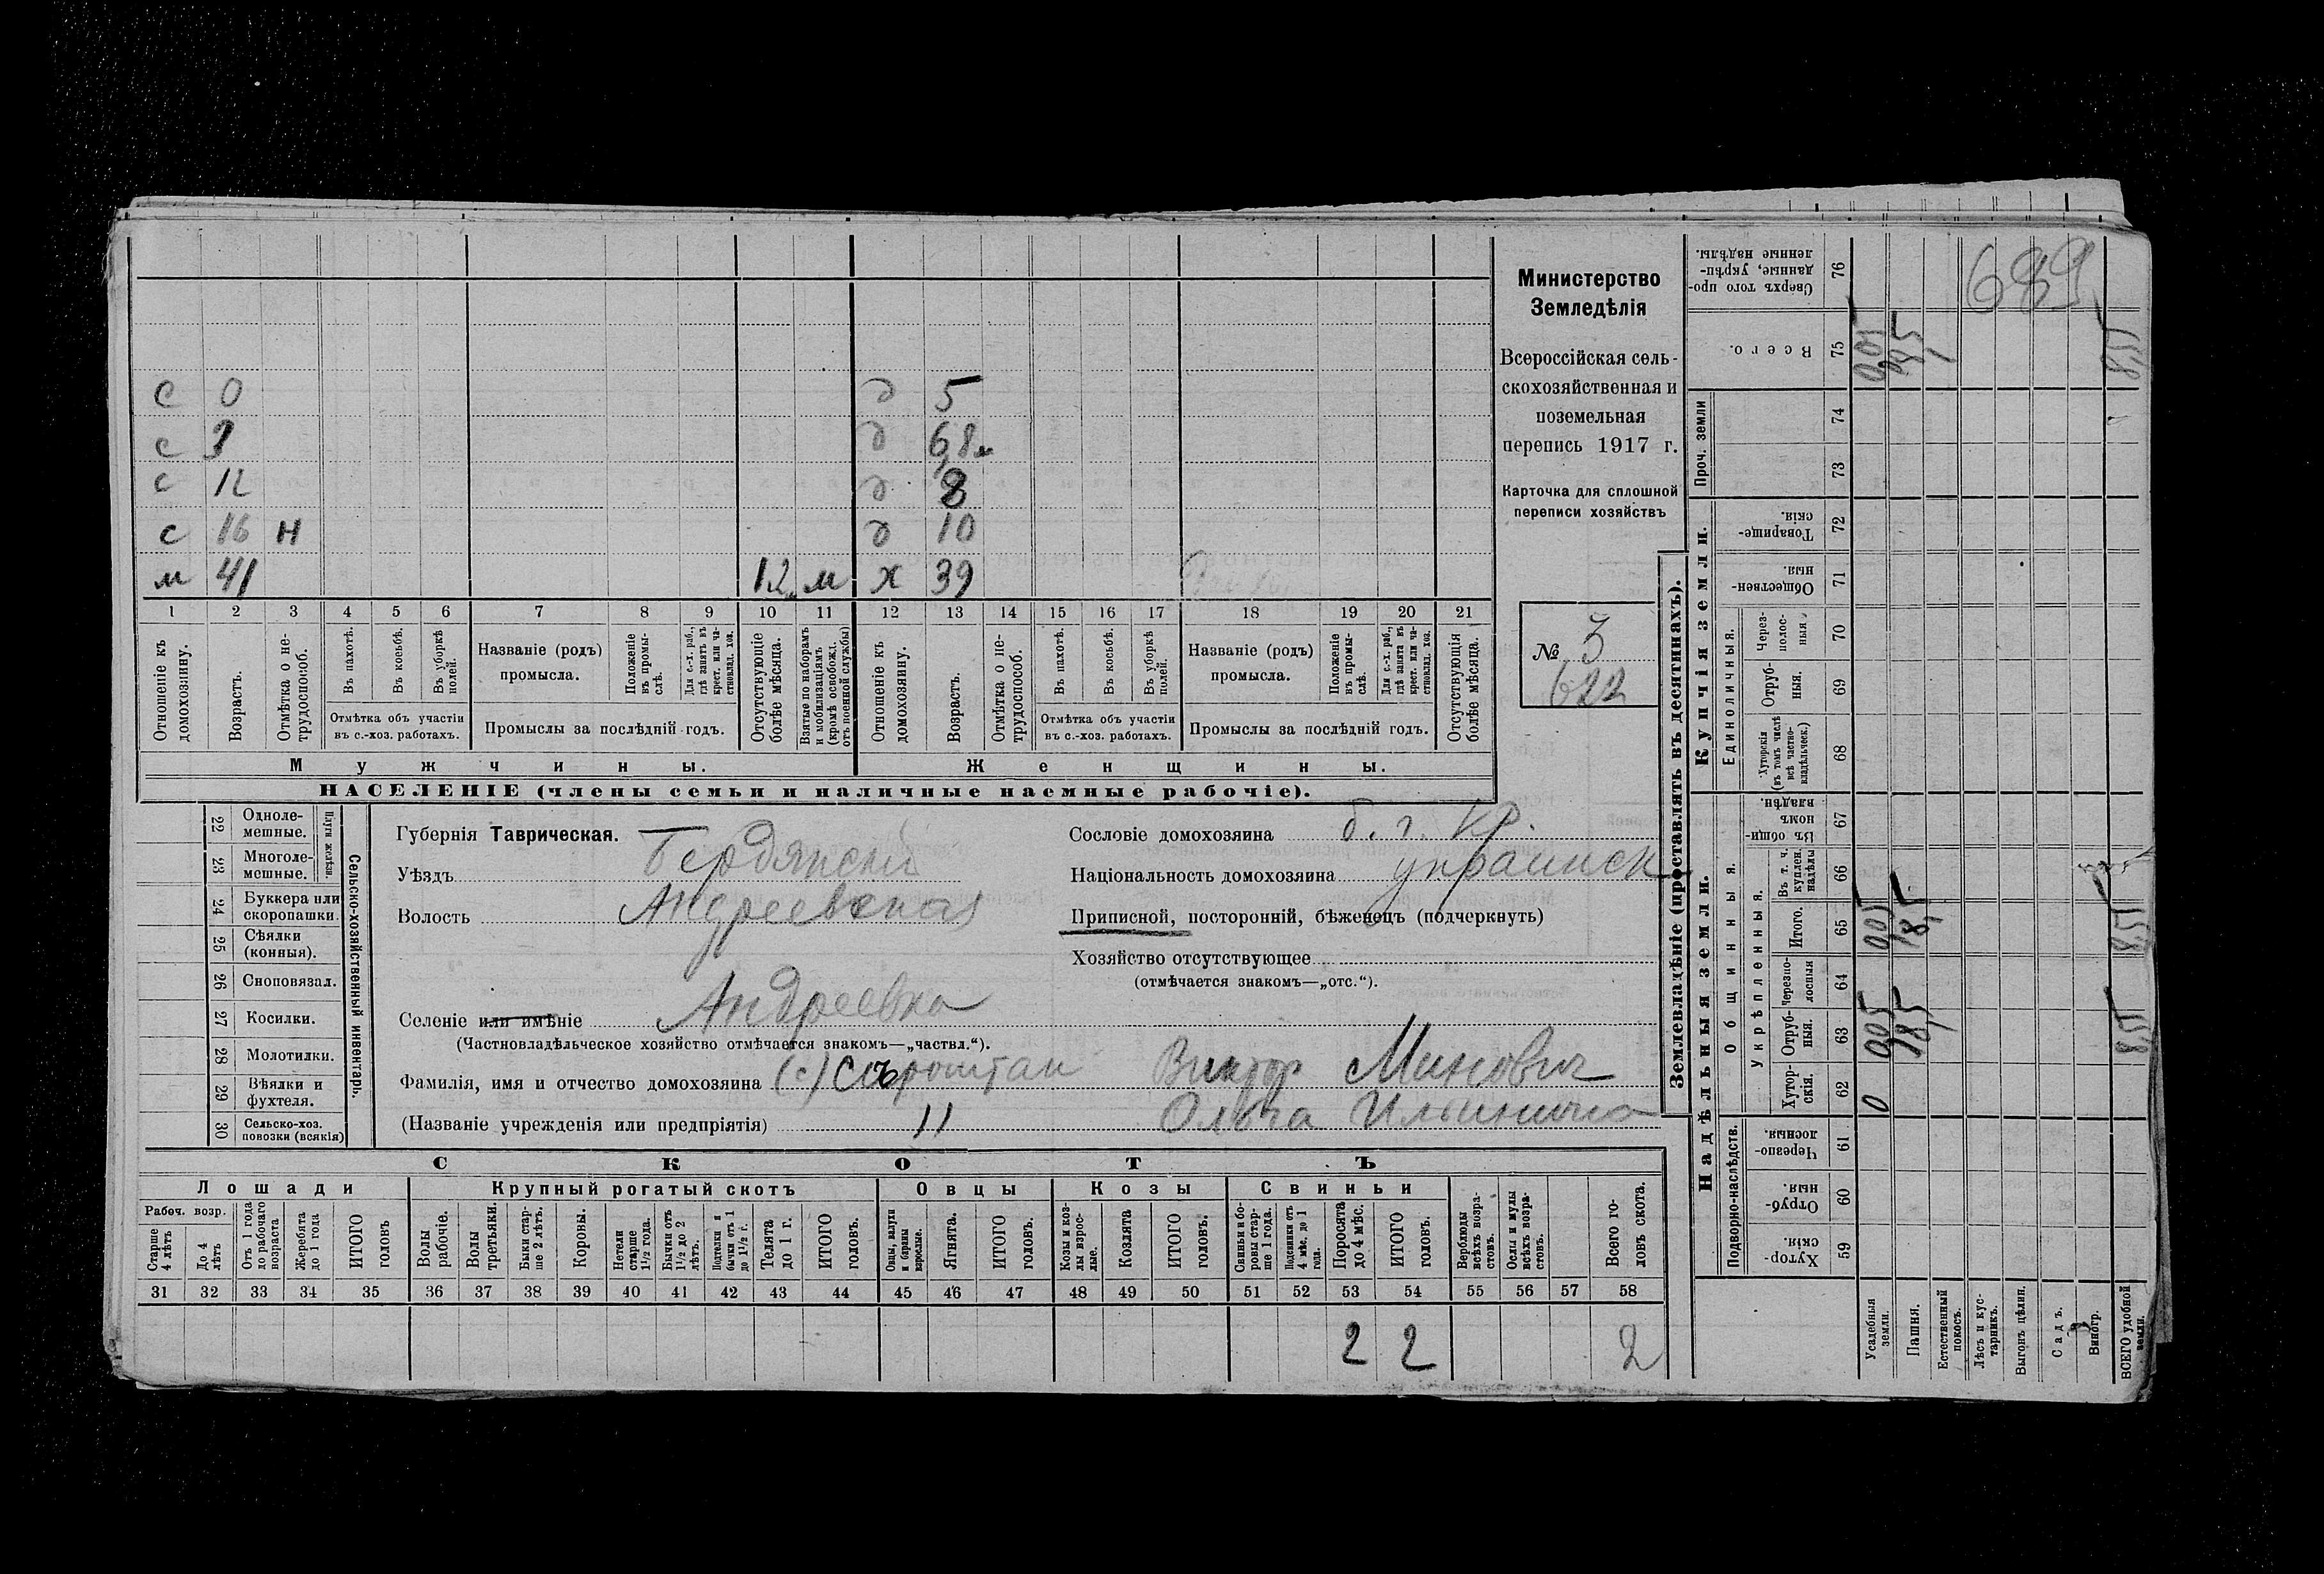 689
с 0
с 3
с 12
с 16 н
м 41 12 м
д 5
д 6,8 м
д 8
д 10
ж 39
1 2 3 4 5 6 7 8 9 10 11 12 13 14 15 16 17 18 19 20 21
Отношеніе къ домохозяину.
Возрастъ.
Отмѣтка о не-трудоспособ.
Въ пахотѣ.
Въ косьбѣ.
Въ уборкѣ полей.
Отмѣтка объ участіи въ с.-хоз. работахъ.
Названіе (родъ) промысла.
Положеніе въ промы-слѣ.
Для с.-х. раб., гдѣ занятъ въ крест. или ча-стновлад. хоз.
Промыслы за послѣдній годъ.
Отсутствующіе болѣе мѣсяца.
Взятые по наборамъ и мобилизаціямъ (кромѣ освобожд. отъ военной службы)
Отношеніе къ домохозяину.
Возрастъ.
Отмѣтка о не-трудоспособ.
Въ пахотѣ.
Въ косьбѣ.
Въ уборкѣ полей.
Отмѣтка объ участіи въ с.-хоз. работахъ.
Названіе (родъ) промысла.
Положеніе въ промы-слѣ.
Для с.-х. раб., гдѣ занята въ крест. или ча-стновлад. хоз.
Промыслы за послѣдній годъ.
Отсутствующія болѣе мѣсяца.
Мужчины.
Женщины.
НАСЕЛЕНІЕ (члены семьи и наличные наемные рабочіе).
Министерство
Земледѣлія
Всероссійская сель-
скохозяйственная и
поземельная
перепись 1917 г.
Карточка для сплошной
переписи хозяйствъ
№ 3
622
22 Однолемешные.
23 Многолемешные.
Плуги желѣзн.
24 Буккера или скоропашки.
25 Сѣялки (конныя).
26 Сноповязал.
27 Косилки.
28 Молотилки.
29 Вѣялки и фухтеля.
30 Сельско-хоз. повозки (всякія)
Сельско-хозяйственный инвентарь.
Губернія Таврическая.
Уѣздъ Бердянскій
Волость Андреевская
Селеніе или имѣніе Андреевка
(Частновладѣльческое хозяйство отмѣчается знакомъ—„частвл.“).
Фамилія, имя и отчество домохозяина (с) Сыроштан Виктор Минович
(Названіе учрежденія или предпріятія) 11 Ольга Ильинична
Сословіе домохозяина б. г. кр.
Національность домохозяина украинск
Приписной, посторонній, бѣженецъ (подчеркнуть)
Хозяйство отсутствующее
(отмѣчается знакомъ—„отс.“).
СКОТЪ
Лошади
Крупный рогатый скотъ
Овцы
Козы
Свиньи
Рабоч. возр.
Старше 4 лѣтъ
До 4 лѣтъ
Отъ 1 года до рабочаго возраста
Жеребята до 1 года
ИТОГО головъ
Волы рабочіе.
Волы третьяки.
Быки стар-ше 2 лѣтъ.
Коровы.
Нетели старше 1½ года.
Бычки отъ 1½ до 2 лѣтъ.
Подтелки и бычки отъ 1 до 1½ г.
Телята до 1 г.
ИТОГО головъ.
Овцы, валухи и бараны взрослые.
Ягнята.
ИТОГО головъ.
Козы и коз-лы взрос-лые.
Козлята
ИТОГО головъ.
Свиньи и бо-ровы стар-ше 1 года.
Подсвинки отъ 4 мѣс. до 1 года.
Поросята до 4 мѣс.
ИТОГО головъ.
Верблюды всѣхъ возра-стовъ.
Ослы и мулы всѣхъ возра-стовъ.
Всего го-ловъ скота.
31 32 33 34 35 36 37 38 39 40 41 42 43 44 45 46 47 48 49 50 51 52 53 54 55 56 57 58
2 2 2
Землевладѣніе (проставлять въ десятинахъ).
Надѣльныя земли.
Купчія земли.
Проч. земли
Общинныя.
Укрѣпленныя.
Единоличныя.
Подворно-наслѣдств.
Хутор-скія 59
Отруб-ныя. 60
Черезпо-лосныя. 61
Хутор-скія. 62 0
Отруб-ныя. 63 005 18,5 8,55
Черезпо-лосныя 64
Итого. 65 005 18,5 8,55
Въ т. ч. куплен. надѣлы 66
Въ общин-номъ владѣн. 67
Хуторскія (въ томъ числѣ всѣ частно-владѣльческ.) 68
Отруб-ныя. 69
Через-полос-ныя. 70
Обществен-ныя. 71
Товарище-скія. 72
73
74
Всего. 75
Сверхъ того про-данные, укрѣп-ленные надѣлы. 76
Усадебныя земли.
Пашня.
Естественный покосъ.
Лѣсъ и кус-тарникъ.
Выгонъ цѣлин.
Садъ.
Виногр.
ВСЕГО удобной земли.